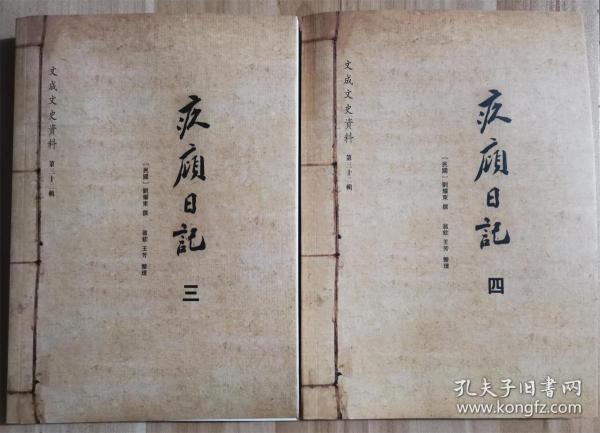 文成文史資料 第三十一輯
疚廎日記
〔民國〕劉耀東 撰 王芳 整理
三
文成文史資料 第三十一輯
疚廎日記
〔民國〕劉耀東 撰 王芳 整理
四
孔夫子旧书网
www.kongfz.com